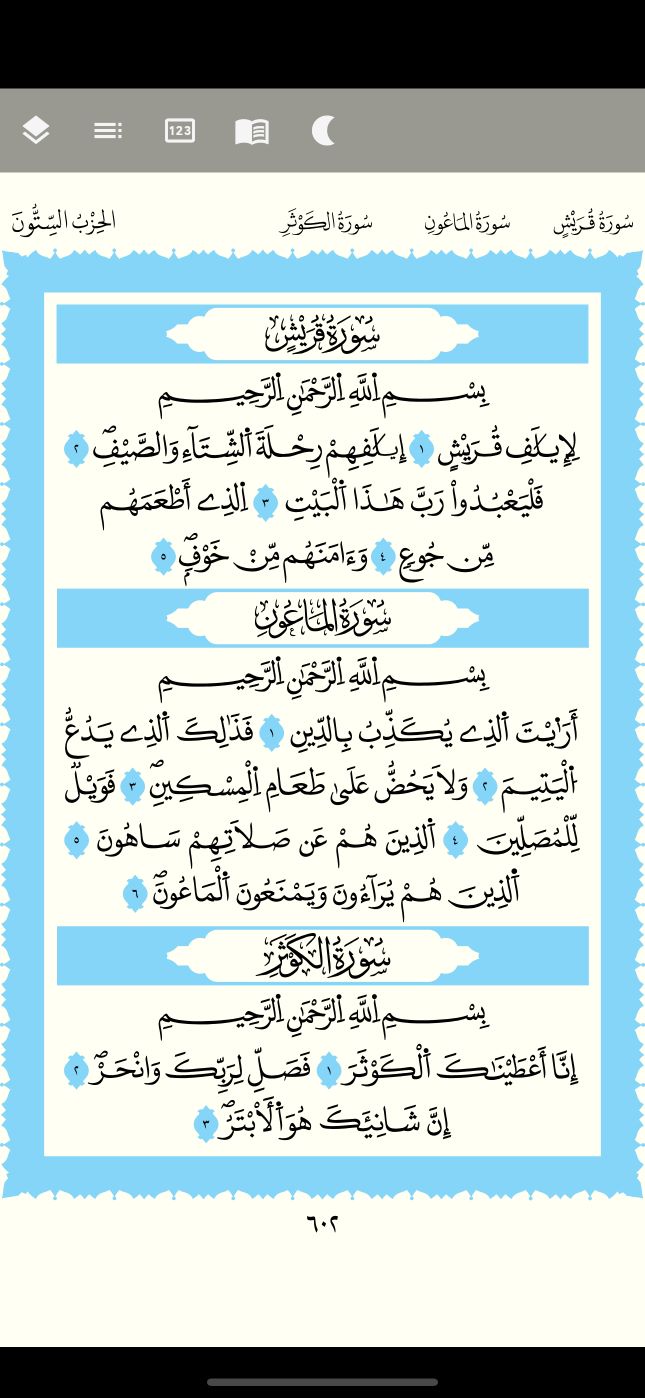 123
سُورَةُ قُرَيْشٍ سُورَةُ المَاعُونِ سُورَةُ الكَوْثَرِ الحِزْبُ السِّتُّونَ
سُورَةُ قُرَيْشٍ
بِسْمِ اِ۬للَّهِ اِ۬لرَّحْمَٰنِ اِ۬لرَّحِيمِ
لِإِيلَٰفِ قُرَيْشٍ ١ إِۦلَٰفِهِمْ رِحْلَةَ اَ۬لشِّتَآءِ وَالصَّيْفِۖ ٢
فَلْيَعْبُدُواْ رَبَّ هَٰذَا اَ۬لْبَيْتِ ٣ اِ۬لذِے أَطْعَمَهُم
مِّن جُوعٍ ٤ وَءَامَنَهُم مِّنْ خَوْفٍۖ ٥
سُورَةُ المَاعُونِ
بِسْمِ اِ۬للَّهِ اِ۬لرَّحْمَٰنِ اِ۬لرَّحِيمِ
أَرَٰٓيْتَ اَ۬لذِے يُكَذِّبُ بِالدِّينِ ١ فَذَٰلِكَ اَ۬لذِے يَدُعُّ
اُ۬لْيَتِيمَ ٢ وَلَا يَحُضُّ عَلَىٰ طَعَامِ اِ۬لْمِسْكِينِۖ ٣ فَوَيْلٌ
لِّلْمُصَلِّينَ ٤ اَ۬لذِينَ هُمْ عَن صَلَاتِهِمْ سَاهُونَ ٥
اَ۬لذِينَ هُمْ يُرَآءُونَ وَيَمْنَعُونَ اَ۬لْمَاعُونَۖ ٦
سُورَةُ الكَوْثَرِ
بِسْمِ اِ۬للَّهِ اِ۬لرَّحْمَٰنِ اِ۬لرَّحِيمِ
إِنَّا أَعْطَيْنَٰكَ اَ۬لْكَوْثَرَ ١ فَصَلِّ لِرَبِّكَ وَانْحَرْۖ ٢
إِنَّ شَانِئَكَ هُوَ اَ۬لَابْتَرُۖ ٣
٦٠٢